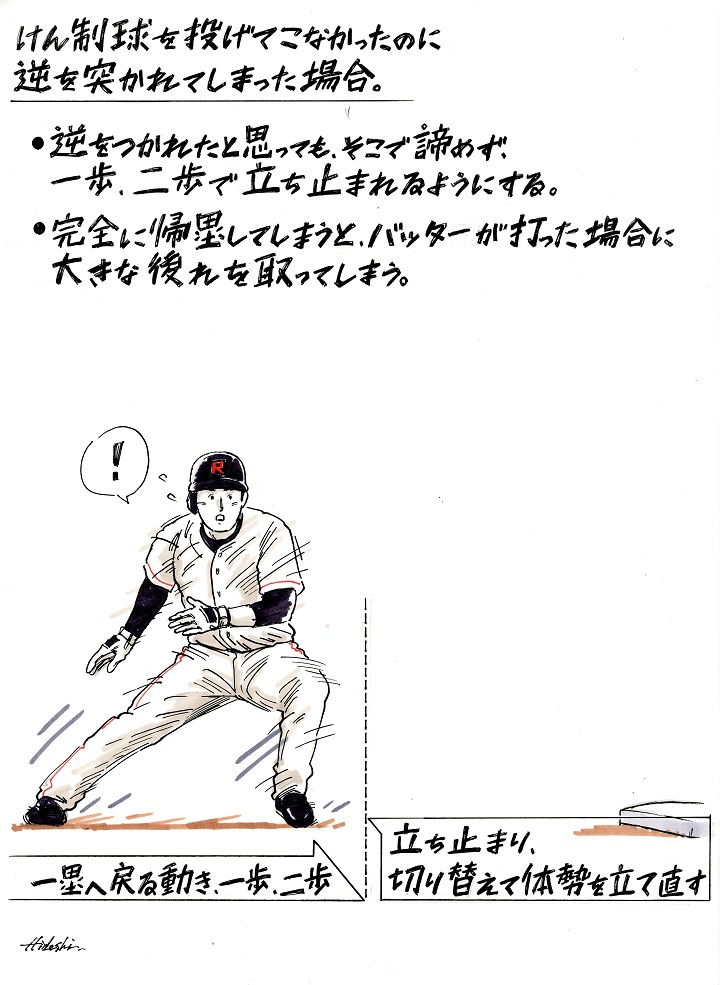 けん制球を投げてこなかったのに
逆を突かれてしまった場合。
●逆をつかれたと思っても、そこで諦めず、
一歩、二歩で立ち止まれるようにする。
●完全に帰塁してしまうと、バッターが打った場合に
大きな後れを取ってしまう。
!
R
一塁へ戻る動き、一歩、二歩
立ち止まり、
切り替えて体勢を立て直す
Hideshi